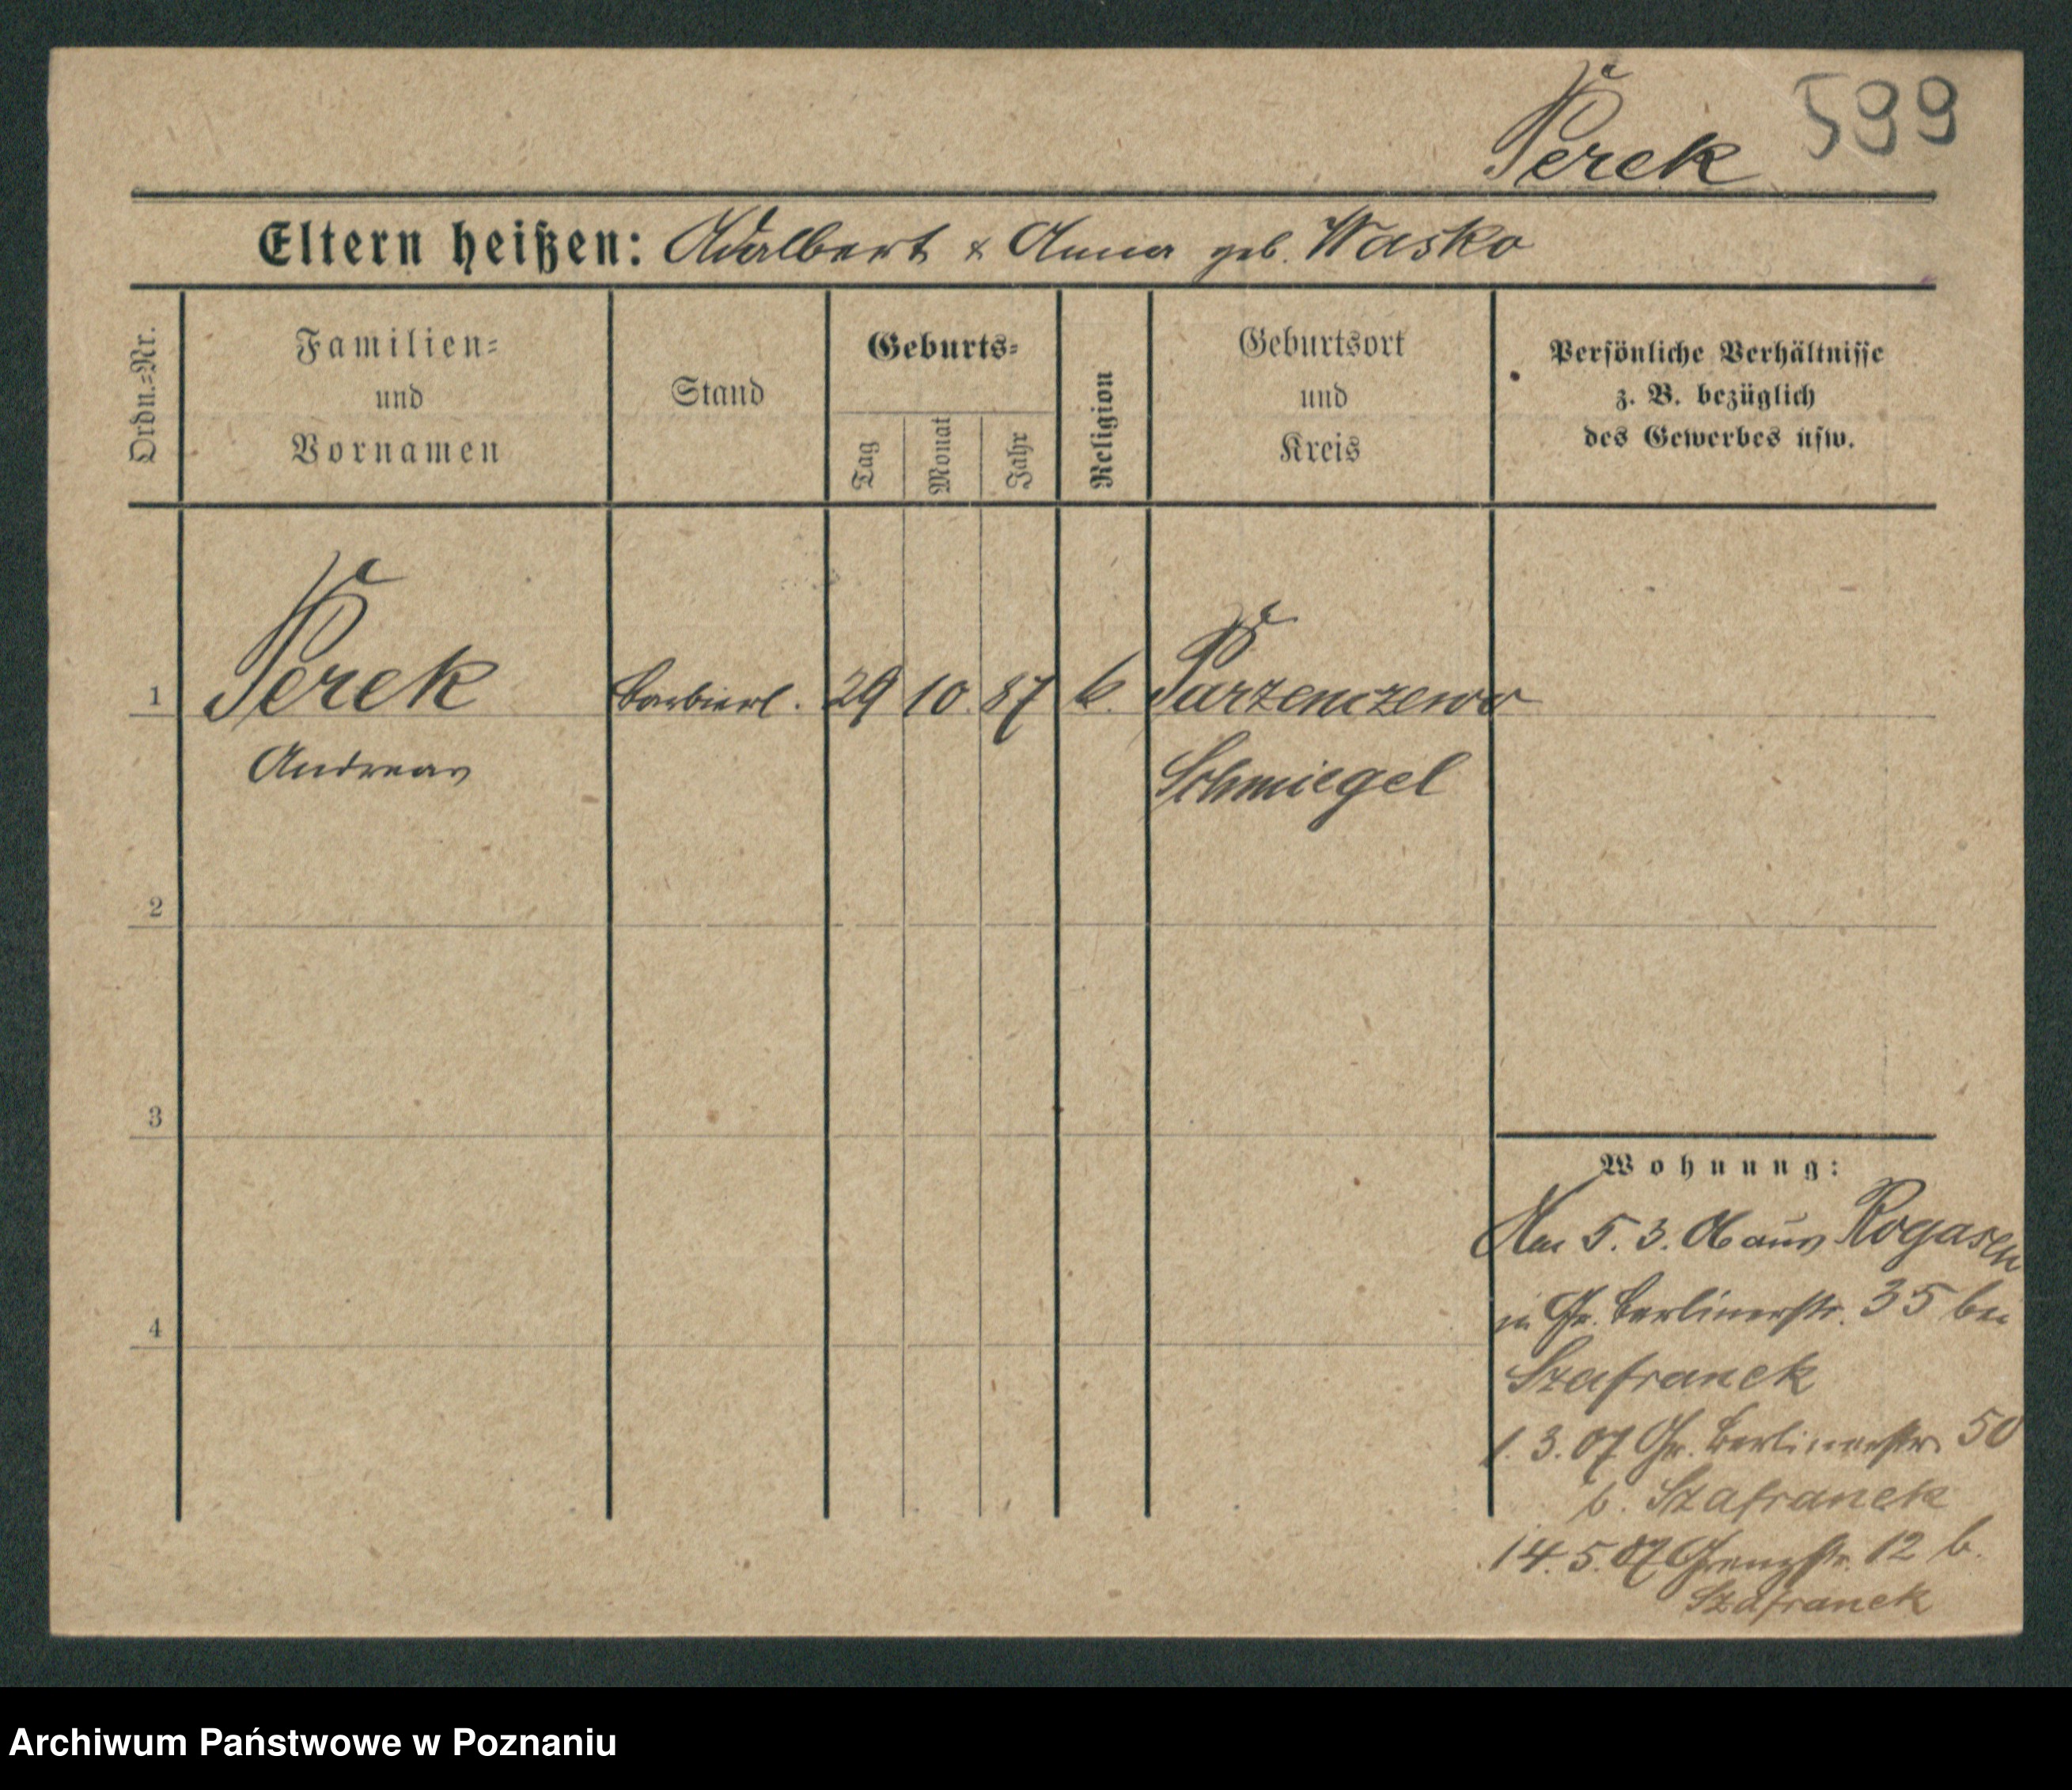 Perek 599
Eltern heißen: Adalbert & Anna geb. Wasko
Ordn.=Nr.
Familien=
und
Vornamen
Stand
Geburts=
Tag
Monat
Jahr
Religion
Geburtsort
und
Kreis
Persönliche Verhältnisse
z. B. bezüglich
des Gewerbes usw.
1 Perek Barbierl. 29 10. 87 k. Parzenczewo
Andreas Schmiegel
2
3
4
Wohnung:
Am 5. 3. 06 aus Rogasen
in Gr. Berlinerstr. 35 bei
Szafranek
1. 3. 07 Gr. Berlinerstr. 50
b. Szafranek
14. 5. 07 Grenzstr. 12 b.
Szafranek
Archiwum Państwowe w Poznaniu